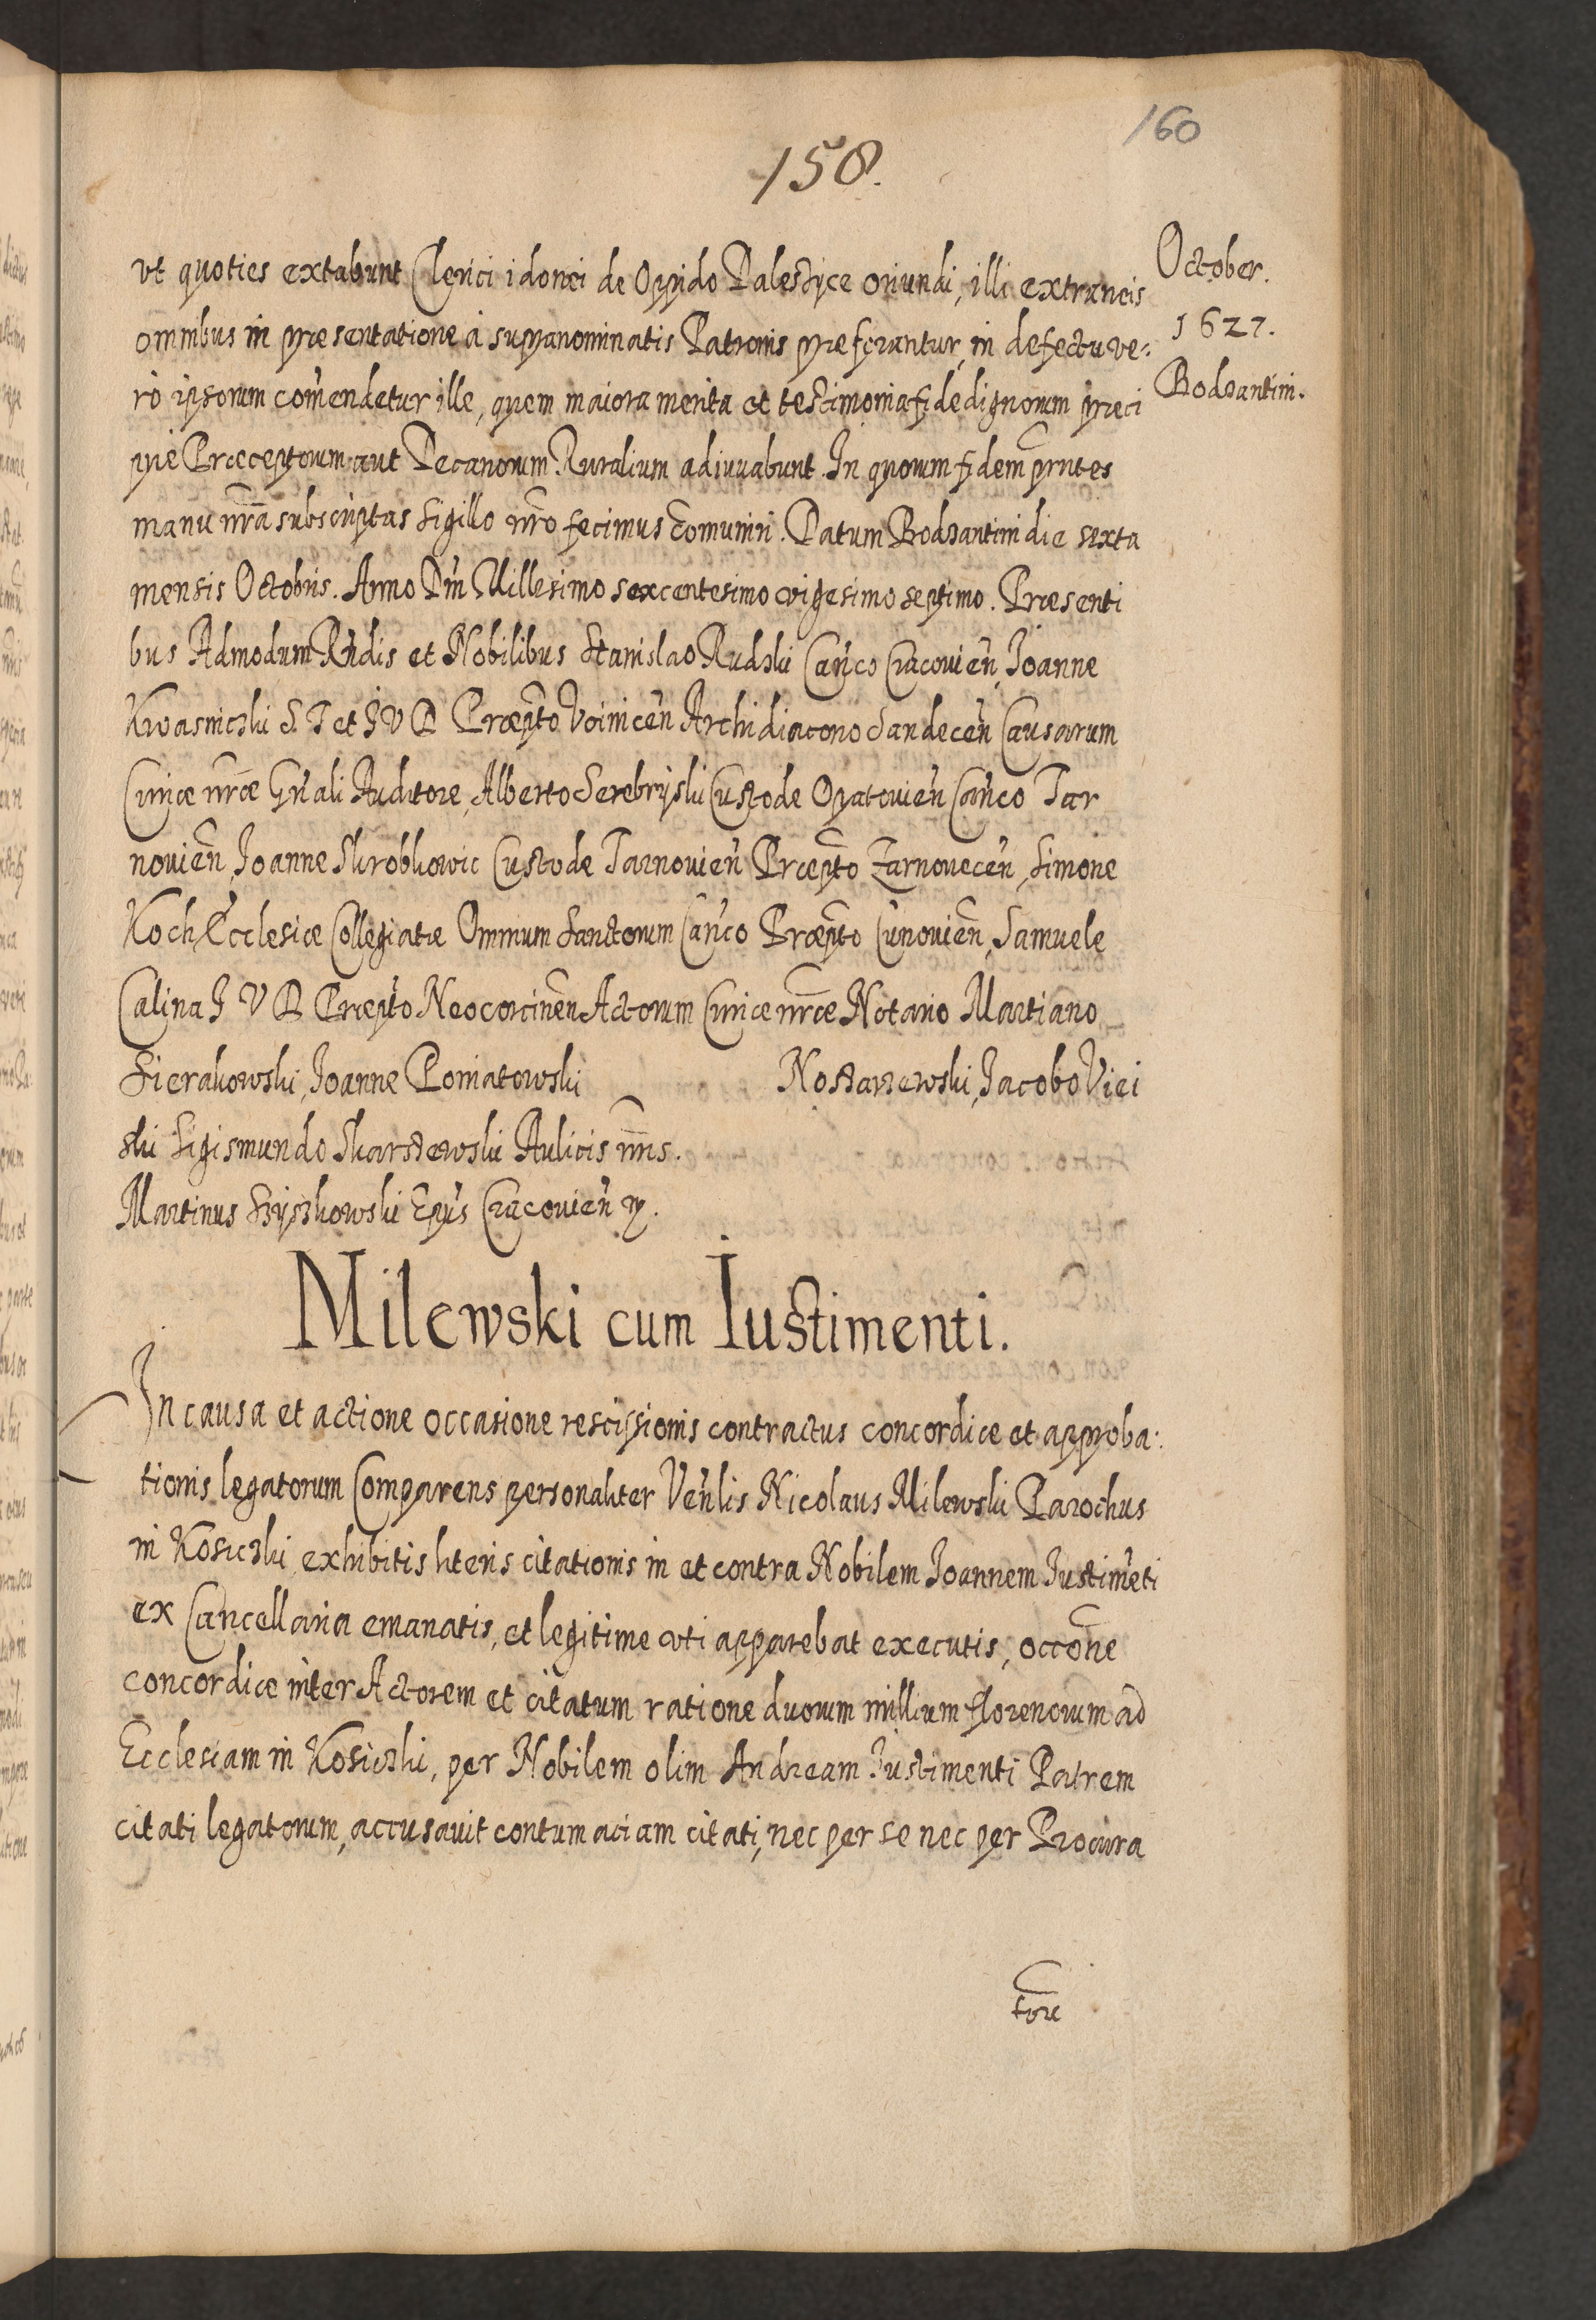 160
158.
October.
1627.
Bodzantini.
vt quoties extabunt Clerici idonei de Oppido Daleszyce oriundi, illi extraneis
omnibus in præsentatione à supranominatis Patronis præferantur, in defectu ve:
rò ipsorum com̃endetur ille, quem maiora merita et testimonia fidedignorum præci
puè Præceptorum aut Decanorum Ruralium adiuuabunt. In quorum fidem prñtes
manu nrã subscriptas Sigillo nrõ fecimus com̃uniri. Datum Bodzantini die sexta
mensis Octobris. Anno Dñi Millesimo sexcentesimo vigesimo septimo. Præsenti
bus Admodum Rñdis et Nobilibus Stanislao Rudzki Cañco Cracovieñ, Ioanne
Kwasniczki S T et I V D Præpto Voiniceñ Archidiacono Sandeceñ Causarum
Curiæ nræ Gñali Auditore, Alberto Serebryski Custode Opatovieñ Cañco Tar
novieñ, Ioanne Skrobkowic Custode Tarnovieñ Præpto Zarnoveceñ, Simone
Koch Ecclesiæ Collegiatæ Omnium Sanctorum Cañco Præpto Cunovieñ, Samuele
Calina I V D Præpto Neocorcineñ Actorum Curiæ nræ Notario Martiano
Sierakowski, Ioanne Poniatowski Nostarzewski, Iacobo Viei
ski Sigismundo Skarszewski Aulicis nris.
Martinus Szyszkowski Epũs Cracovieñ
Milewski cum Iustimenti.
In causa et actione occasione rescissionis contractus concordiæ et approba:
tionis legatorum Comparens personaliter Veñlis Nicolaus Milewski Parochus
in Kosiczki exhibitis literis citationis in et contra Nobilem Ioannem Iustim̃eti
ex Cancellaria emanatis, et legitime vti apparebat executis, occõne
concordiæ inter Actorem et citatum ratione duorum millium florenorum ad
Ecclesiam in Kosiczki, per Nobilem olim Andream Iustimenti Patrem
citati legatorum, accusauit contumaciam citati, nec per se nec per Procura
torẽ